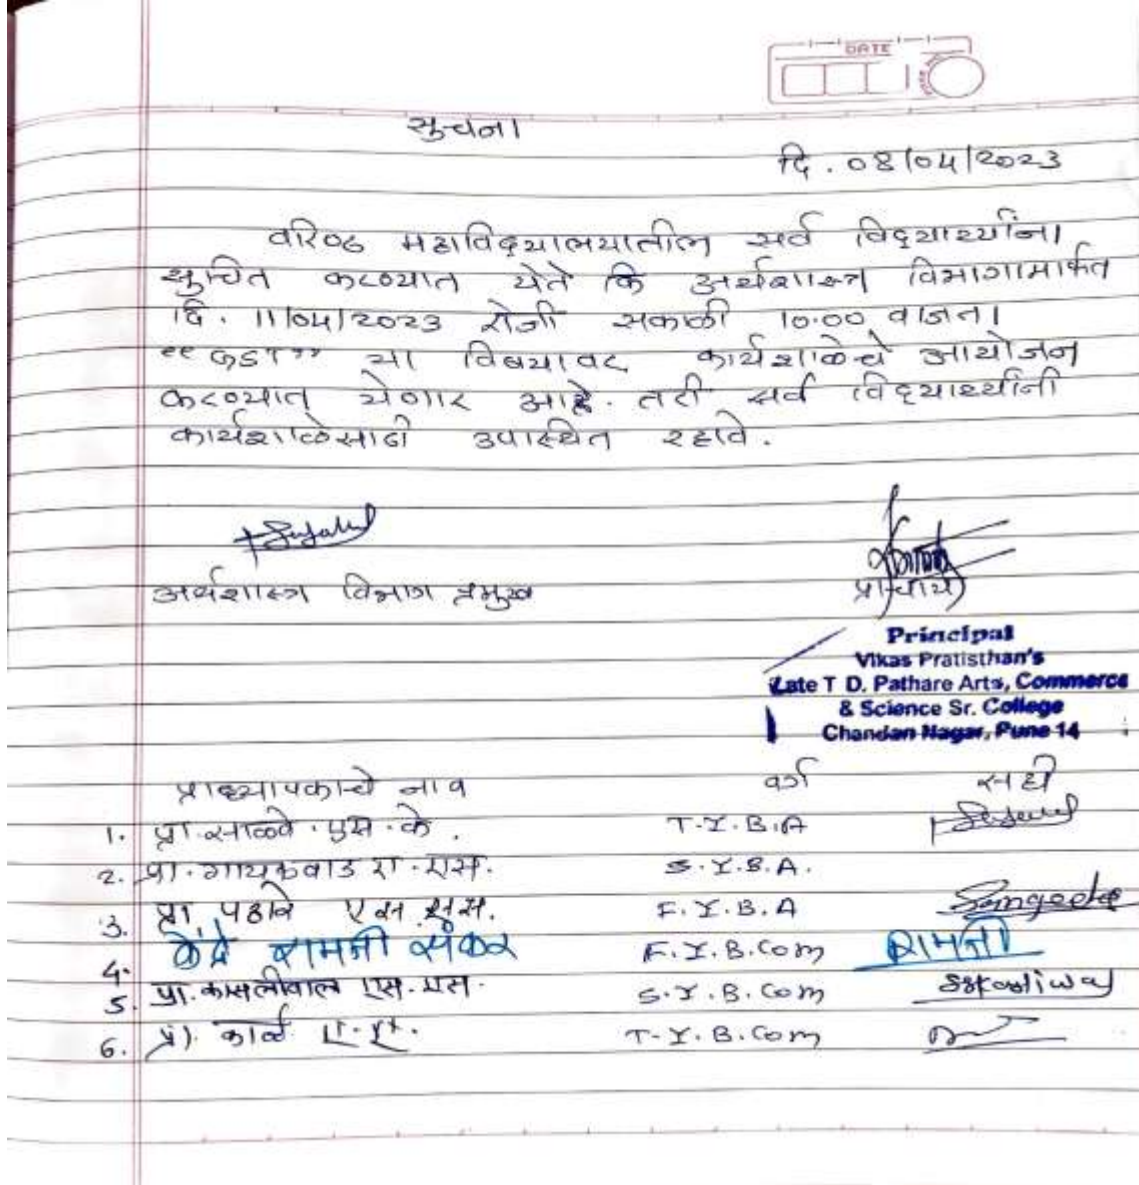 DATE
सुचना
दि. 08/04/2023
वरिष्ठ महाविद्यालयातील सर्व विद्यार्थ्यांना
सुचित करण्यात येते कि अर्थशास्त्र विभागामार्फत
दि. 11/04/2023 रोजी सकाळी 10.00 वाजता
"GST" या विषयावर कार्यशाळेचे आयोजन
करण्यात येणार आहे. तरी सर्व विद्यार्थ्यांनी
कार्यशाळेसाठी उपास्थित रहावे.
अर्थशास्त्र विभाग प्रमुख
प्राचार्य
Principal
Vikas Pratisthan's
Late T D. Pathare Arts, Commerce
& Science Sr. College
Chandan Nagar, Pune 14
प्राध्यापकाचे नाव वर्ग सही
1. प्रा. साळवे. एस. के. T.Y.B.A
2. प्रा. गायकवाड ए. एस. S.Y.B.A.
3. प्रा. पठारे एस. एस. F.Y.B.A Sangeeta
4. केंद्रे बामजी F.Y.B.Com
5. प्रा. कासलीवाल एस. एस. S.Y.B.Com SSKasliwal
6. प्रा. काळे T.Y.B.Com